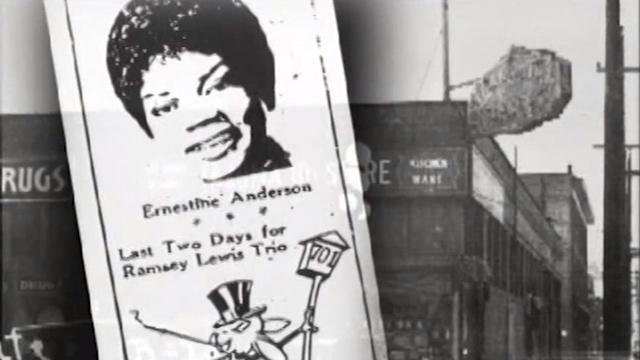 RUGS
RE
KITCHEN
WARE
Ernestine Anderson
Last Two Days for
Ramsey Lewis Trio
701
DRUGS